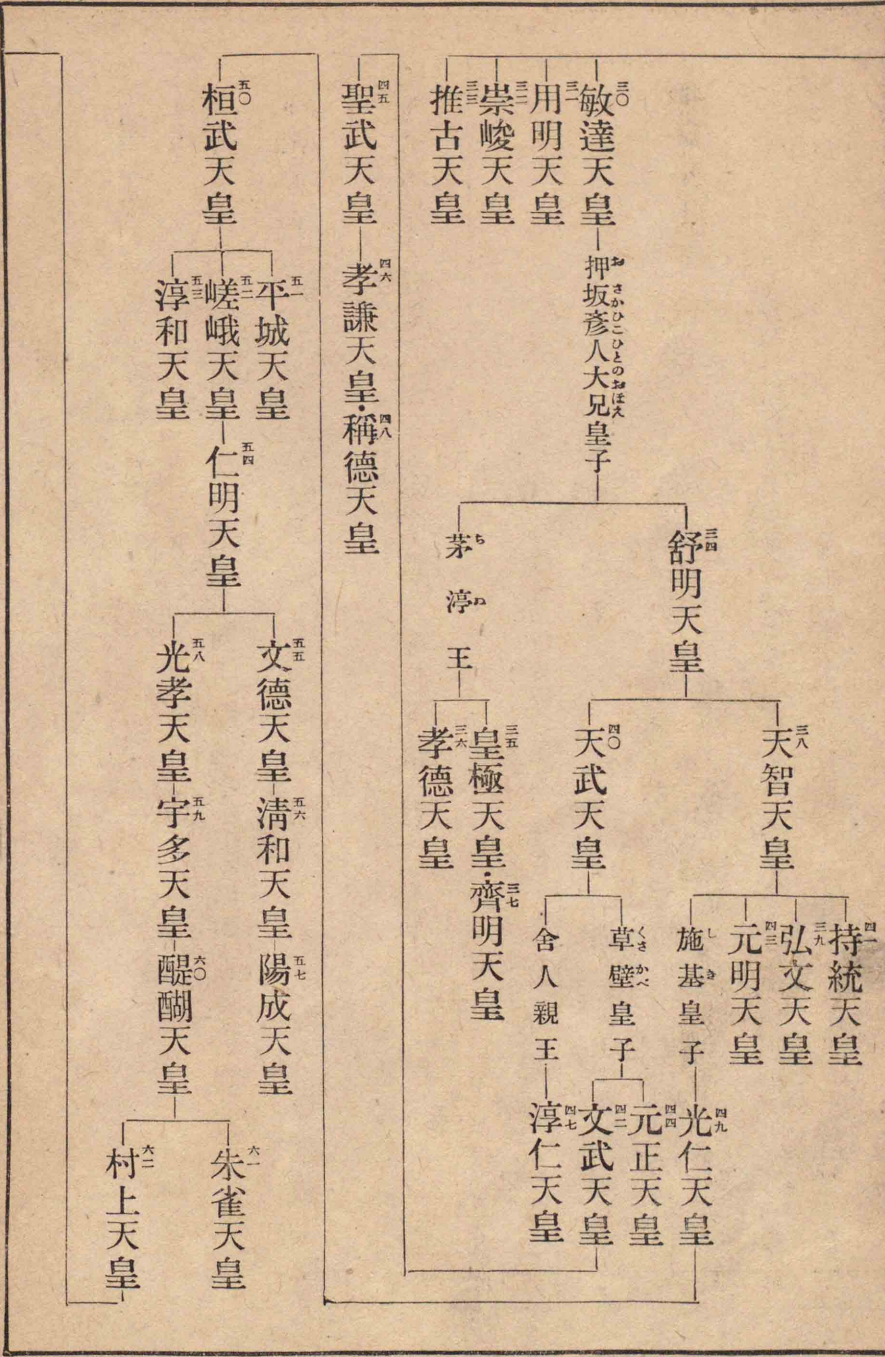 三〇敏達天皇
押坂彥人大兄皇子
おさかひこひとのおほえ
三一用明天皇
三二崇峻天皇
三三推古天皇
三四舒明天皇
茅渟王
ちぬ
三八天智天皇
四〇天武天皇
三五皇極天皇・三七齊明天皇
三六孝德天皇
四一持統天皇
三九弘文天皇
四三元明天皇
施基皇子
しき
草壁皇子
くさかべ
舍人親王
四九光仁天皇
四四元正天皇
四二文武天皇
四七淳仁天皇
四五聖武天皇
四六孝謙天皇・四八稱德天皇
五〇桓武天皇
五一平城天皇
五二嵯峨天皇
五三淳和天皇
五四仁明天皇
五五文德天皇
五六淸和天皇
五七陽成天皇
五八光孝天皇
五九宇多天皇
六〇醍醐天皇
六一朱雀天皇
六二村上天皇